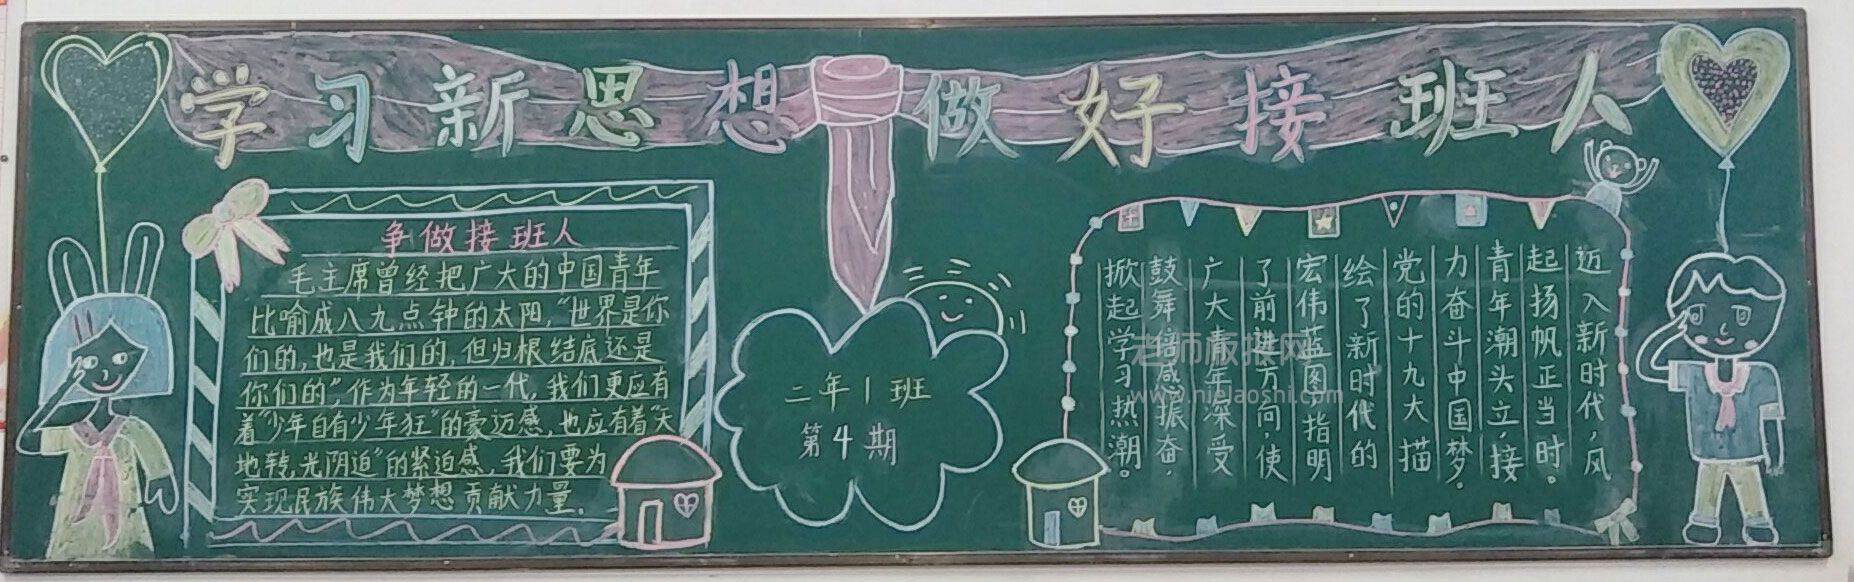 学习新思想 做好接班人
争做接班人
毛主席曾经把广大的中国青年
比喻成八九点钟的太阳,“世界是你
们的,也是我们的,但归根结底还是
你们的”,作为年轻的一代,我们更应有
着“少年自有少年狂”的豪迈感,也应有着“天
地转,光阴迫”的紧迫感,我们要为
实现民族伟大梦想贡献力量。
二年1班
第4期
近入新时代,风
起扬帆正当时。
青年潮头立,接
力奋斗中国梦。
党的十九大描
绘了新时代的
宏伟蓝图,指明
了前进方向,使
广大青年深受
鼓舞倍感振奋,
掀起学习热潮。
老师板报网
www.nielaoshi.com